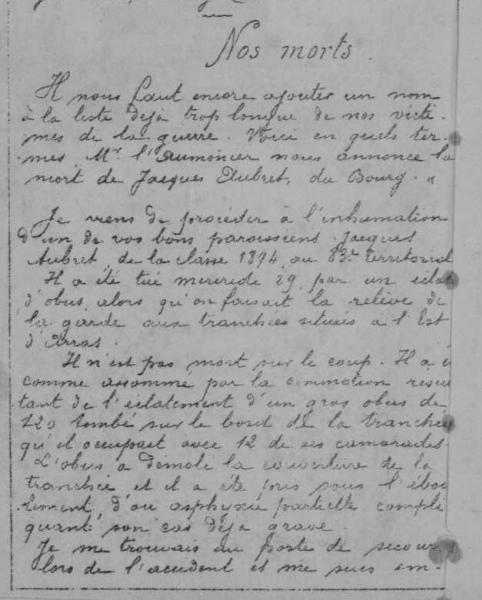 Nos morts.
Il nous faut encore ajouter un nom
à la liste déjà trop longue de nos victi-
mes de la guerre. Voici en quels ter-
mes Mr l'Aumônier nous annonce la
mort de Jacques Aubret, du Bourg. "
Je viens de procéder à l'inhumation
d'un de vos bons paroissiens Jacques
Aubret, de la classe 1894 au 83e Territorial
Il a été tué mercredi 29 par un éclat
d'obus, alors qu'on faisait la relève de
la garde aux tranchées situées à l'Est
d'Arras.
Il n'est pas mort sur le coup. Il a é
comme assommé par la commotion résul
tant de l'éclatement d'un gros obus de
220 tombé sur le bord de la tranchée
qu'il occupait avec 12 de ses camarades
L'obus a démoli la couverture de la
tranchée et il a été pris sous l'ébou
lement, d'où asphyxie partielle compli
quant son cas déjà grave.
Je me trouvais au poste de secours
lors de l'accident et me suis em-